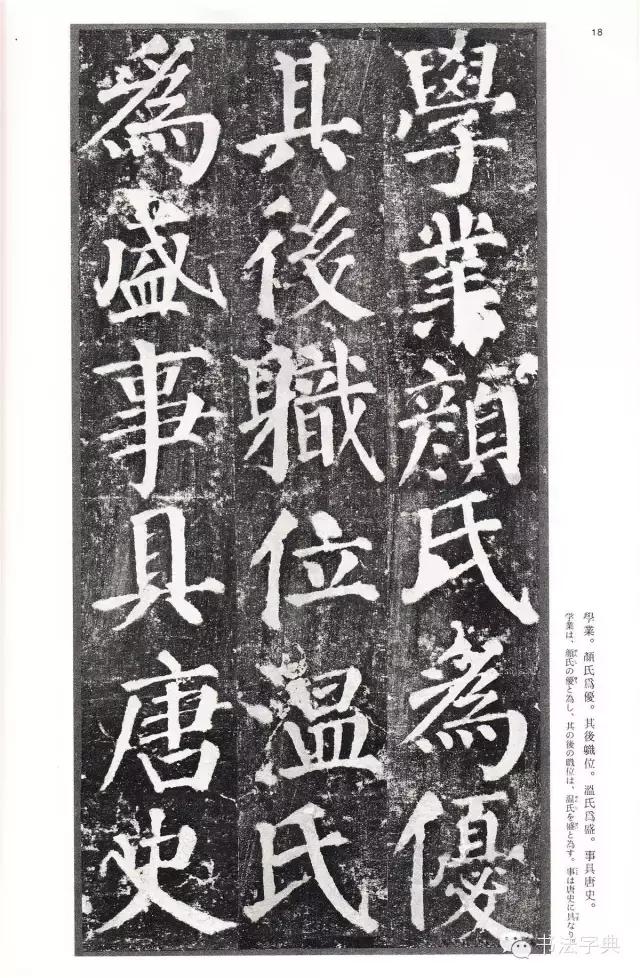 18
學業顔氏為優
其後職位温氏
為盛事具唐史
學業。顏氏爲優。其後職位。溫氏爲盛。事具唐史。
学業は、顔氏の優と為し、其の後の職位は、温氏を盛と為す。事は唐史に具なり。
书法字典